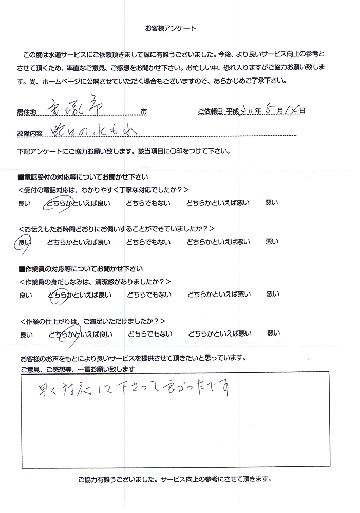 お客様アンケート
この度は水道サービスにご依頼頂きまして誠に有難うございました。今後、より良いサービス向上の参考と
させて頂くため、率直なご意見、ご感想をお聞かせ下さい。お忙しい中、恐れ入りますがご協力お願い致しま
す。尚、ホームページに公開させていただく場合もございますので、あらかじめご了承下さい。
居住地 市 ご依頼日 平成30年5月14日
故障内容 蛇口の水もれ
下記アンケートにご協力お願い致します。該当項目に〇印をつけて下さい。
■電話受付の対応等についてお聞かせ下さい
<受付の電話対応は、わかりやすく丁寧な対応でしたか?>
良い どちらかといえば良い どちらでもない どちらかといえば悪い 悪い
<お伝えしたお時間どおりにお伺いすることができていましたか?>
良い どちらかといえば良い どちらでもない どちらかといえば悪い 悪い
■作業員の対応等についてお聞かせ下さい
<作業員の身だしなみは、清潔感がありましたか?>
良い どちらかといえば良い どちらでもない どちらかといえば悪い 悪い
<作業の仕上がりは、ご満足いただけましたか?>
良い どちらかといえば良い どちらでもない どちらかといえば悪い 悪い
お客様のお声をもとにより良いサービスを提供させて頂きたいと思っています。
ご意見、ご感想等、一筆お願い致します
早く対応して下さって良かったです
ご協力有難うございました。サービス向上の参考にさせて頂きます。